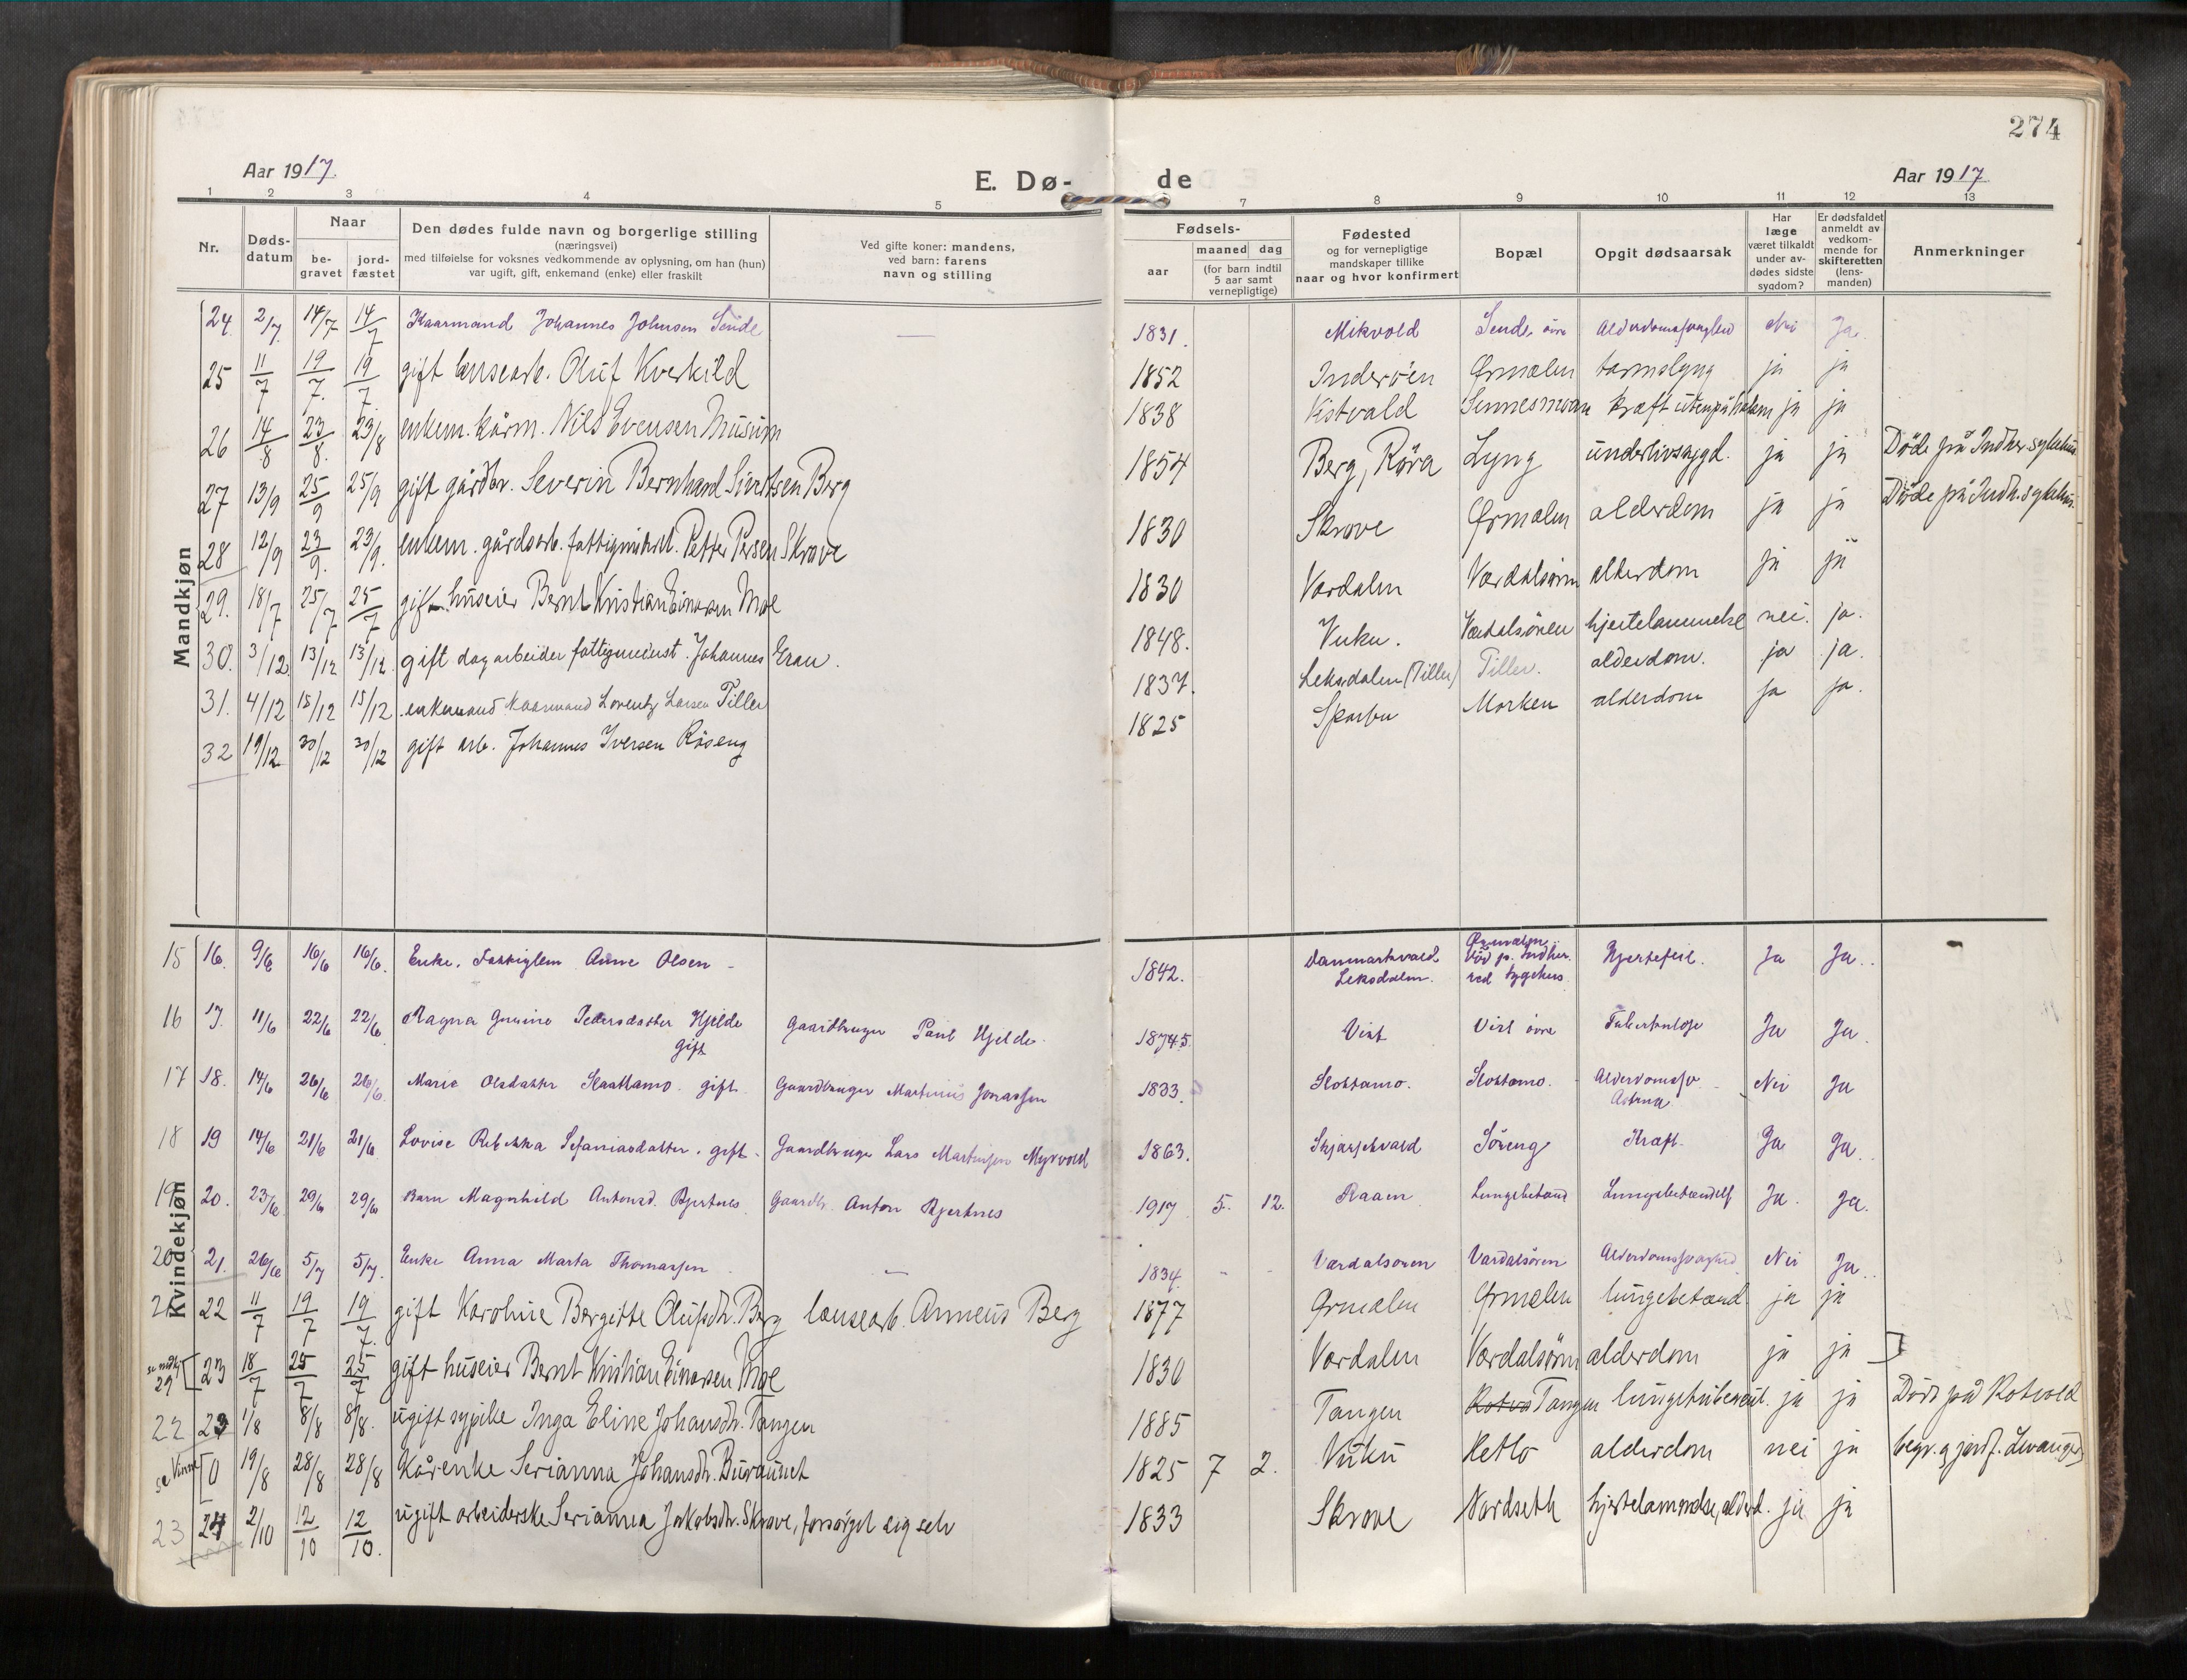 274
Aar 1917.
E. Dø-
de
Aar 1917
1 2 3 4 5 7 8 9 10 11 12 13
Nr.
Døds-
datum
Naar
be-
gravet
jord-
fæstet
Den dødes fulde navn og borgerlige stilling
(næringsvei)
med tilføielse for voksnes vedkommende av oplysning, om han (hun)
var ugift, gift, enkemand (enke) eller fraskilt
Ved gifte koner: mandens,
ved barn: farens
navn og stilling
Fødsels-
aar
maaned dag
(for barn indtil
5 aar samt
vernepligtige)
Fødested
og for vernepligtige
mandskaper tillike
naar og hvor konfirmert
Bopæl
Opgit dødsaarsak
Har
læge
været tilkaldt
under av-
dødes sidste
sygdom?
Er dødsfaldet
anmeldt av
vedkom-
mende for
skifteretten
(lens-
manden)
Anmerkninger
Mandkjøn
24. 2/7. 14/7 14/7 Kaarmand Johannes Johnsen Sende — 1831. Mikvold Sende øvre Nei Ja.
25 11/7 19/7. 19/7. gift lensearb. Oluf Kverkild 1852 Inderøen Ørmelen tarmslyng ja ja
26 14/8 23/8. 23/8 enkem. kårm. Nils Evensen Musum 1838 Kistvald Sennesmoan kræft ja ja
27 13/9 25/9 25/9 gift gårdbr. Severin Bernhard Sivertsen Berg 1854 Berg, Röra Lyng underlivssygd. ja ja Döde på Indher. sykehus
28 12/9 23/9. 23/9. enkem. gårdsarb. fattigunderst. Petter Persen Skrove 1830 Skrove Ørmelen alderdom ja ja Döde på Indh. sykehus.
29. 18/7 25/7 25/7 gift huseier Bernt Kristian Einarsen Moe 1830 Værdalen Værdalsøren alderdom ja ja
30. 3/12 13/12 13/12. gift dagarbeider fattigunderst. Johannes Eran. 1848. Vuku. Værdalsören hjertelammelse nei. ja.
31. 4/12 15/12 15/12 enkemand kaarmand Lorentz Larsen Tiller 1837. Leksdalen (Tiller) Tiller. alderdom. ja ja.
32 19/12 30/12 30/12 gift arb. Johannes Iversen Röseng 1825 Sparbu Marken alderdom ja ja.
Kvindekjøn
15 16. 9/6 16/6 16/6. Enke. Fattiglem Anne Olsen - 1842. Danmarkvald Leksdalen. Ørmelen. Död p. Indher. red sygehus Hjertefeil. Ja Ja.
16 17. 11/6 22/6 22/6 Ragna Gurine Pedersdatter Hjelde gift Gaardbruger Paul Hjelde 18745. Vist Vist övre Tuberkulose Ja Ja.
17 18. 14/6 26/6 26/6. Marie Olsdatter gift Gaardbruger Martinus Jonassen 1833. Slottamo. Alderdomssv. Astma Nei Ja
18 19 14/6 21/6 21/6 Lovise Rebekka Sefaniasdatter. gift - Gaardbruger Lars Martinsen Myrvold 1863. Skjærsetvald Söreng Kræft Ja Ja.
19 20. 23/6 29/6 29/6 Barn Magnhild Antonsd. Bjertnes Gaardbr. Anton Bjertnes 1917 5. 12. Raaen Lungebetænd Lungebetændelse Ja. Ja.
20 21. 26/6 5/7 5/7. Enke Anna Marta Thomassen — 1834. - - Værdalsøren Værdalsören Alderdomssvaghed Nei Ja.
21 22 11/7 19/7 19/7. gift Karoline Bergitte Olufsdtr. Berg lensearb. Anneus Berg 1877 Ørmelen Ørmelen lungebetænd ja ja
se mandkj. 29 [23 18/7 25/7 25/7 gift huseier Bernt Kristian Einarsen Moe 1830 Værdalen Værdalsøren alderdom ja ja ]
22 23 1/8 8/8 8/8. ugift sypike Inga Eline Johansdtr. Tangen 1885 Tangen Tangen lungetuberkul. ja ja Död på Rotvold
se Vinne [0 19/8 28/8 28/8 Kårenke Serianna Johansdtr. Buraunet 1825 7 2. Vuku Hetlo alderdom nei ja begr. og jordf. Levanger]
23 24 2/10 12/10 12/10. ugift arbeiderske Serianna Jakobsdtr. Skrove, forsörget sig selv 1833 Skrove Nordseth hjertelammelse, alderd. ja ja